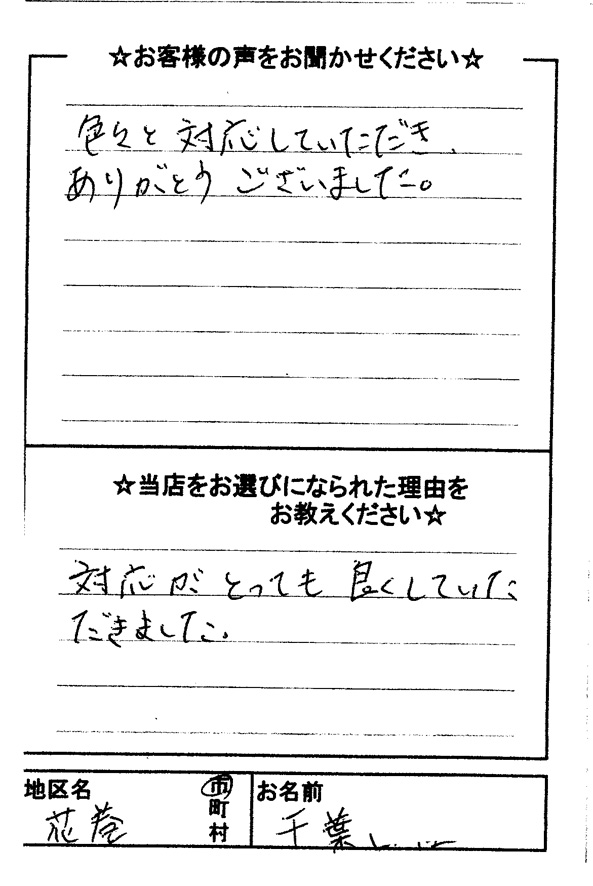 ☆お客様の声をお聞かせください☆
色々と対応していただき、
ありがとうございました。
☆当店をお選びになられた理由を
お教えください☆
対応がとっても良くしていた
だきました。
地区名
花巻
市
町
村
お名前
千葉